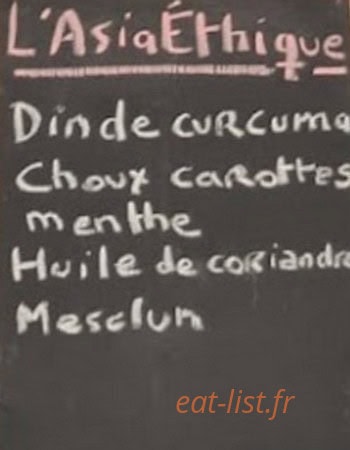 L'AsiaÉthique
Dinde curcuma
Choux carottes
menthe
Huile de coriandre
Mesclun
eat-list.fr